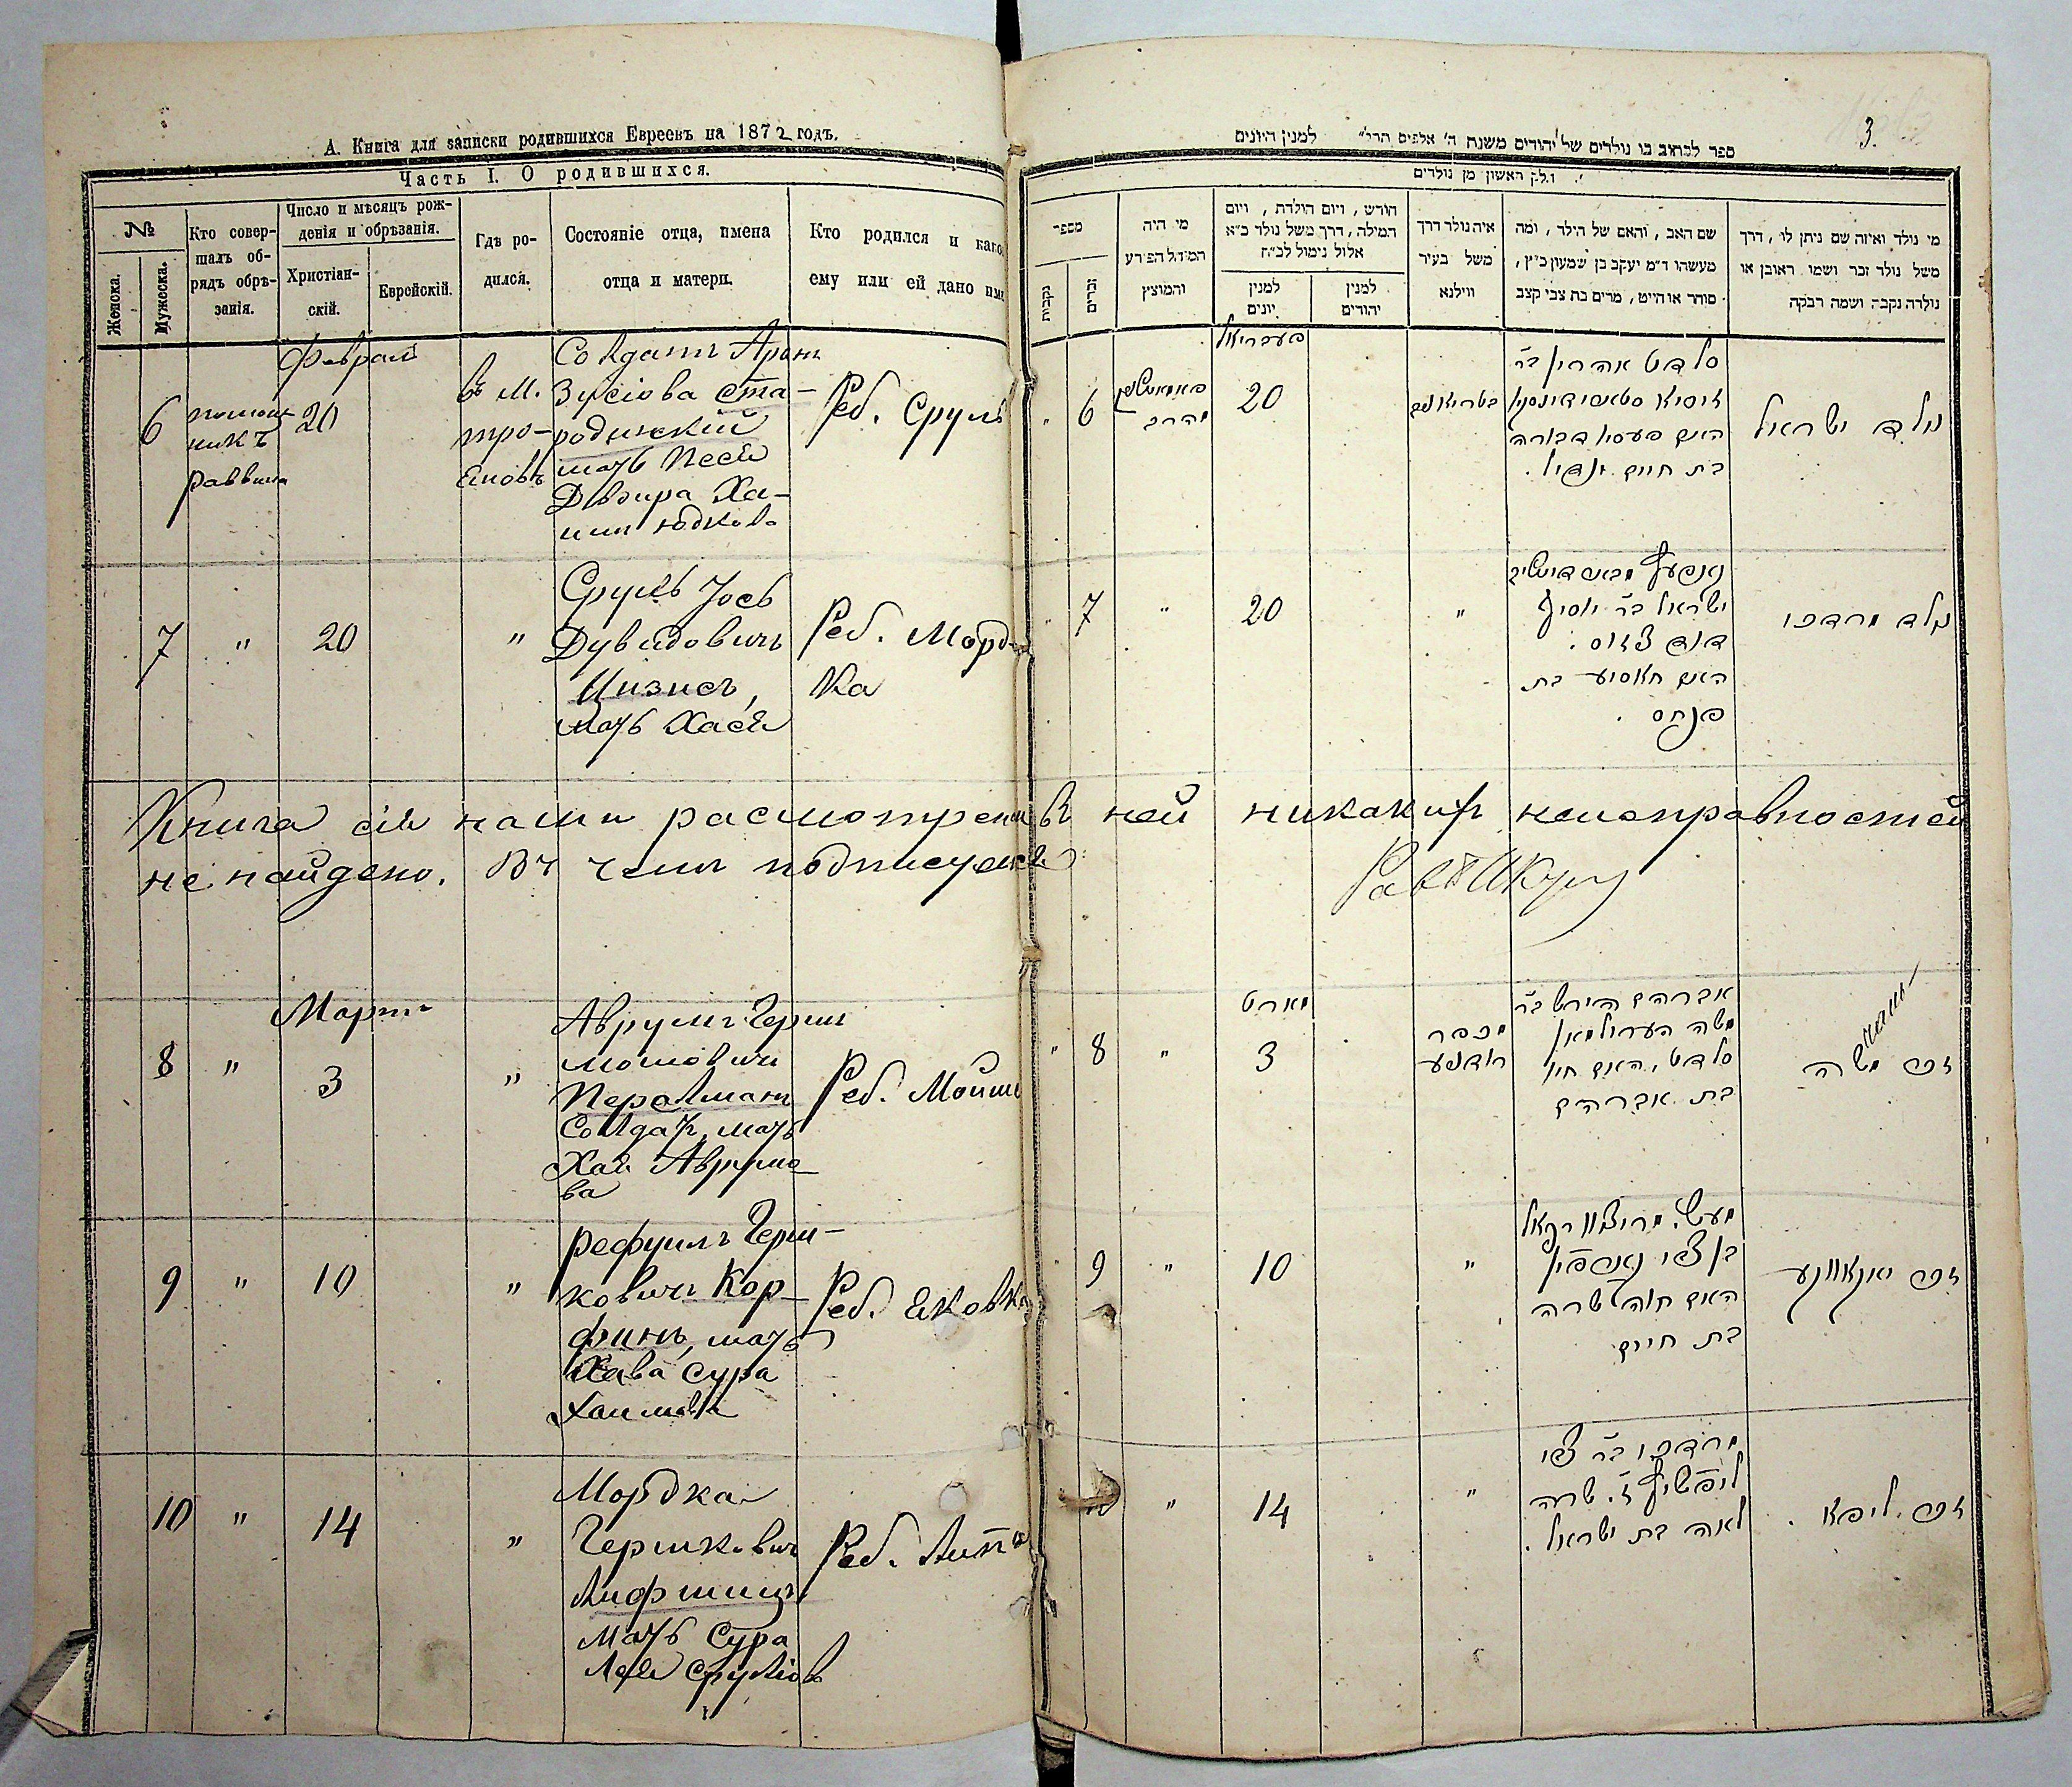 А. Книга для записки родившихся Евреевъ на 1872 годъ.
Часть I. О родившихся.
№
Женска.
Мужеска.
Кто совер-
шалъ об-
рядъ обрѣ-
занія.
Число и мѣсяцъ рож-
денія и обрѣзанія.
Христіан-
скій.
Еврейскій.
Гдѣ ро-
дился.
Состояніе отца, имена
отца и матери.
Кто родился и како
ему или ей дано им
6
помощ
никъ
раввина
Февраль
20
въ м.
тро-
яновъ
Солдатъ Аронъ
Зусіова Ста-
родинскій
мать Песя
Двойра Ха-
имъ Юдкова
Реб. Сруль
7
"
20
"
Сруль Іось
Дувидовичъ
Цизисъ,
мать Хася
Реб. Морд-
ка
Книга сія нами расмотрена
не найдено. Въ чемъ подписуемся
8
"
Мартъ
3
"
Аврумъ Герш
Мошовичъ
Перельманъ
Солдат, мать
Хая Аврумо-
ва
Реб. Мойше
9
"
10
"
Рефуилъ Герш-
ковичъ Кор-
финъ, мать
Хава Сура
Хаимова
Реб. Яковка
10
"
14
"
Мордка
Гершковичъ
Лифшицъ
Мать Сура
Лея Срулiов
Реб. Липа
3.
ספר לכתוב בו נולדים של יהודים משנת ה' אלפים תרל" למנין היונים
חלק ראשון מן נולדים
מספר
נקבות
זכרים
מי היה
המוהל הפורע
והמוצץ
חודש, ויום הולדת, ויום
המילה, דרך משל נולד כ"א
אלול נימול לכ"ח
למנין
יונים
למנין
יהודים
איה נולד דרך
משל בעיר
ווילנא
שם האב, והאם של הילד, ומה
מעשהו ד"מ יעקב בן שמעון כ"ץ,
סוחר או חייט, מרים בת צבי קצב
מי נולד ואיזה שם ניתן לו, דרך
משל נולד זכר ושמו ראובן או
נולדה נקבה ושמה רבקה
6
פעברואל
20
סלדט אהרון בר
האם פעסי דבורה
בת חיים
נולד ישראל
7
"
20
"
ישראל בר יוסיף
דוד ציזיס.
האם חאסיע בת
פנחס.
נולד מרדכי
Въ ней никакихъ неисправностей
8
"
מארט
3
אברהם הירש בר
משה פערילמאן
סלדט, האם חיי
בת אברהם
זכר משה
9
"
10
"
בן צבי
האם חוה שרה
בת חיים
זכר
"
14
"
מרדכי בר צבי
ליפשיץ ז. שרה
לאה בת ישראל.
זכר. ליפא.